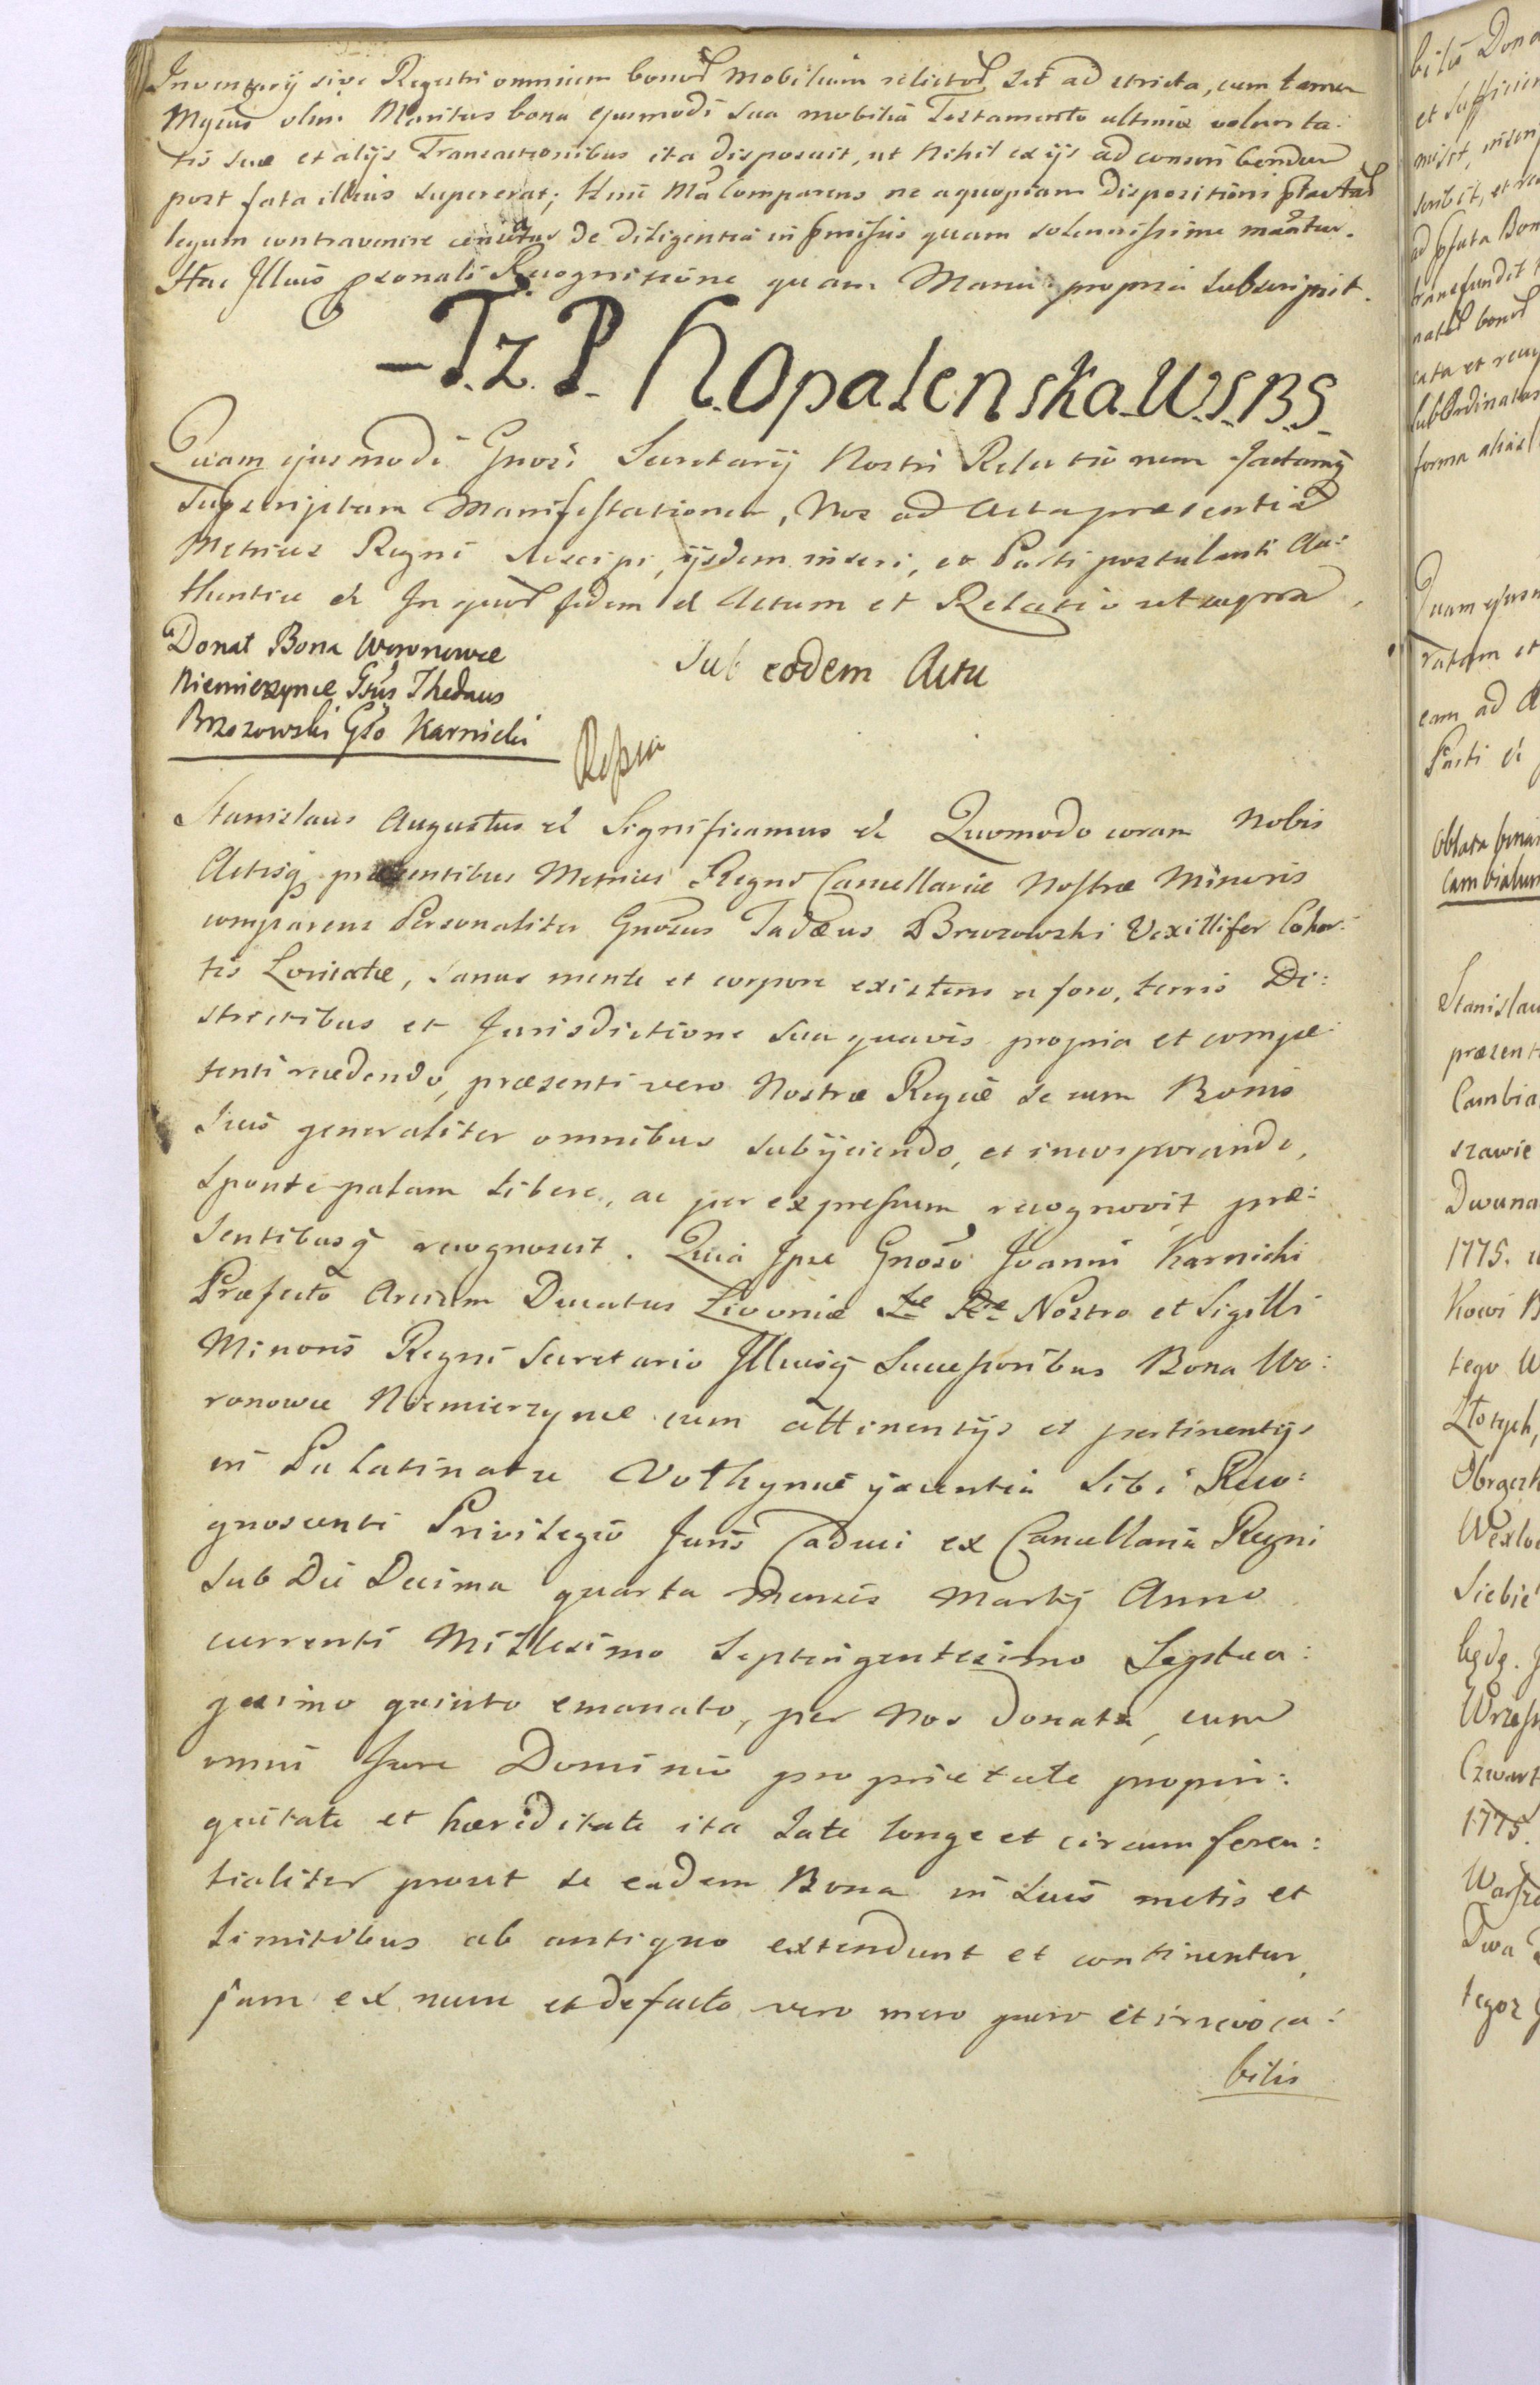 Inventarij sive Regestri omnium bonor̃ mobilium relictor̃ sit ad stricta, cum tamen
Mgcus olim Maritus bona ejusmodi sua mobilia Testamento ultimæ volunta:
tis suæ et alijs Transactionibus ita disposuit, ut nihil ex ijs ad conscribendum
post fata illius supererat; Hinc Mca Comparens ne a quopiam Dispositioni
legum contravenire de Diligentia in præmissis quam solennissime
Hac Illius personali Recognitione quam Manu propria subscripsit.
– T. Z. P. K. Opalenska W. S. B. S.
Quam ejusmodi Gnosi Secretarij Nostri Relationem factamq̃
subscriptam Manifestationem, Nos ad Acta præsentia
Metrices Regni suscipi, ijsdem inseri, et Parti postulanti Au:
thentice et In quor̃ fidem et Actum et Relatio ut supra
Donat Bona Woronowce
Niemierzynce Gsus Thedaus
Brzozowski Gso Karnicki
Sub eodem Actu
Stanislaus Augustus et Significamus et Quomodo coram Nobis
Actisq̃ præsentibus Metrices Regni Cancellariæ Nostræ Minoris
comparens Personaliter Gnosus Tadæus Brzozowski Vexillifer Cohor:
tis Loricatæ, sanus mente et corpore existens a foro, terris Di:
strictibus et Jurisdictione sua quavis propria et compe
tenti recedendo, præsenti vero Nostræ Regiæ se cum Bonis
suis generaliter omnibus subijciendo, et incorporando,
sponte palam libere, ac per expressum recognovit præ:
sentibusq̃ recognoscit. Quia Ipse Gnoso Joanni Karnicki
Præfecto Arcium Ducatus Livoniæ Nostro et Sigilli
Minoris Regni Secretario Illiusq̃ Successoribus Bona Wo:
ronowce Niemierzynce cum attinentijs et pertinentijs
in Palatinatu Volhyniæ jacentia sibi Reco:
gnoscenti Privilegio Juris Caduci ex Cancellaria Regni
sub Die Decima quarta Mensis Martij Anno
currenti Millesimo Septingentesimo Septua:
gesimo quinto emanato, per Nos donata, cum
omni Jure Dominio proprietate propin:
quitate et hæreditate ita late longe et circumferen:
tialiter prout se eadem Bona in suis metis et
limitibus ab antiquo extendunt et continentur,
jam ex nunc et defacto vero mero puro et irrevoca:
bilis
bitis Dona
et sufficien
Quam ejusm
ratam et
eam ad
Parti et
Oblata
Cambialium
Stanislau
præsenti
Cambia
szawie
Dwuna
1775.
Kowi
tego W
Złotych,
Siebie
będz.
Czwart
1775.
Dwa
tegoz